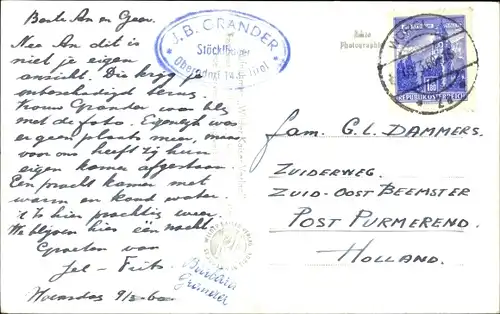 Beste An en Geer.
Nee An dit is
niet je eigen
ansicht. Die krijg je
onbeschadigd terug.
Vrouw Grander was blij
met de foto. Eigenlijk was
er geen plaats meer, maar
voor ons heeft zij hun
eigen kamer afgestaan.
Een pracht kamer met
warm en koud water.
't Is hier prachtig weer.
We blijven hier één nacht.
Groeten van
Jel - Frits.
Woensdag
Barbara
Grander
* J. B. GRANDER *
Stöcklbauer
Oberndorf
Echte
Photographie
REPUBLIK ÖSTERREICH
1.80
Fam. G. L. DAMMERS.
ZUIDERWEG.
ZUID-OOST BEEMSTER
POST PURMEREND.
HOLLAND.